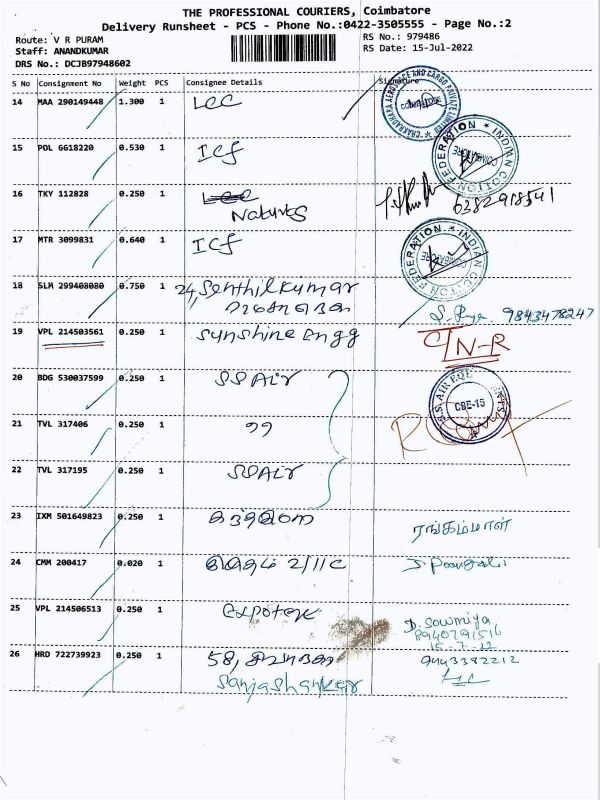 THE PROFESSIONAL COURIERS, Coimbatore
Delivery Runsheet - PCS - Phone No.:0422-3505555 - Page No.:2
Route: V R PURAM
RS No.: 979486
Staff: ANANDKUMAR
RS Date: 15-Jul-2022
DRS No.: DCJB97948602
S No Consignment No Weight PCS Consignee Details Signature
14 MAA 290149448 1.300 1 LCC
15 POL 6618220 0.530 1 ICF
16 TKY 112828 0.250 1
Natures 6382918541
17 MTR 3099831 0.640 1 ICF
18 SLM 299408080 0.750 1 24, Senthilkumar
9843478247
19 VPL 214503561 0.250 1 Sunshine Engg
20 BDG 530037599 0.250 1 SS Air
21 TVL 317406 0.250 1 "
22 TVL 317195 0.250 1 SS Air
23 IXM 501649823 0.250 1
ரங்கம்மாள்
24 CMM 200417 0.020 1 2/11C
25 VPL 214506513 0.250 1 Expotek
D. Sowmiya
8940791516
15-7-22
26 HRD 722739923 0.250 1 58,
9443382212
Sanjashankar
INDIAN COTTON FEDERATION
COIMBATORE
INDIAN COTTON FEDERATION
COIMBATORE
CBE-15